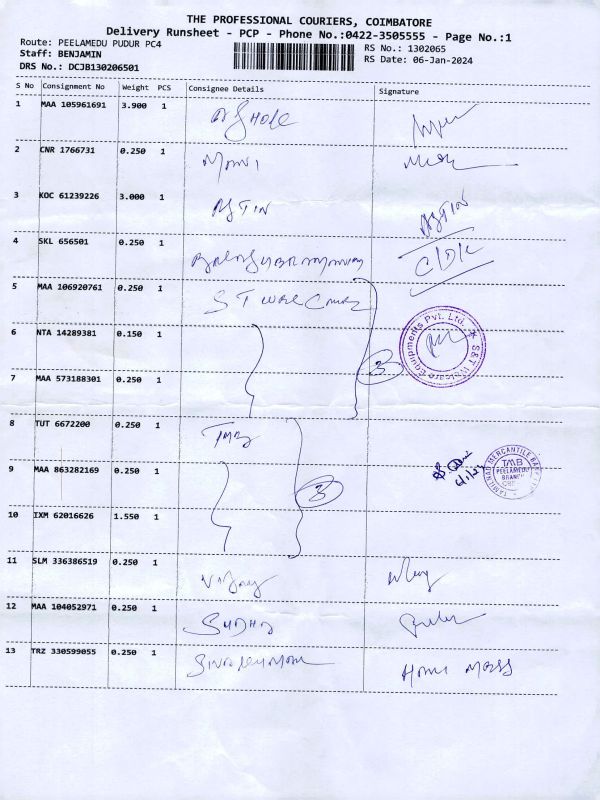 THE PROFESSIONAL COURIERS, COIMBATORE
Delivery Runsheet - PCP - Phone No.:0422-3505555 - Page No.:1
Route: PEELAMEDU PUDUR PC4
RS No.: 1302065
Staff: BENJAMIN
RS Date: 06-Jan-2024
DRS No.: DCJB130206501
S No Consignment No Weight PCS Consignee Details Signature
1 MAA 105961691 3.900 1
2 CNR 1766731 0.250 1 Mani
3 KOC 61239226 3.000 1 AJTIN AJTIN
4 SKL 656501 0.250 1
5 MAA 106920761 0.250 1
6 NTA 14289381 0.150 1
S&T Welcare Equipments Pvt. Ltd.
3
7 MAA 573188301 0.250 1
8 TUT 6672200 0.250 1 TMB
TAMILNAD MERCANTILE BANK
TMB
PEELAMEDU
BRANCH
9 MAA 863282169 0.250 1
3
10 IXM 62016626 1.550 1
11 SLM 336386519 0.250 1 Vijay
12 MAA 104052971 0.250 1 SUDHA
13 TRZ 330599055 0.250 1